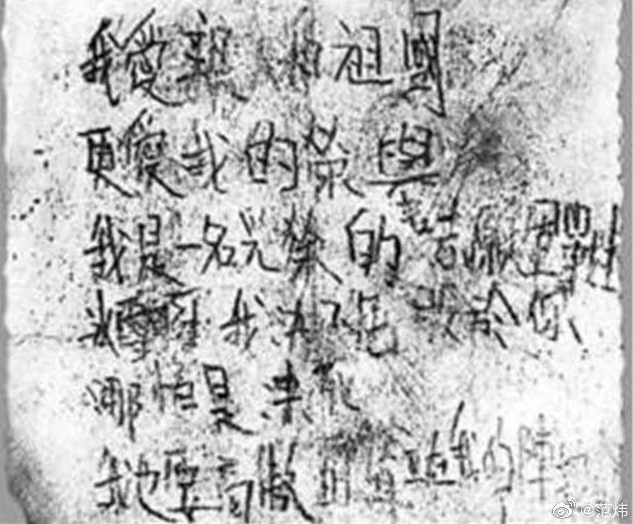 我愛親 和祖國
更愛我的榮與
我是一名光榮的志願軍戰士
冰雪啊 我決不屈 於你
哪怕是凍死
我也要高傲 立在我的陣
@范炜